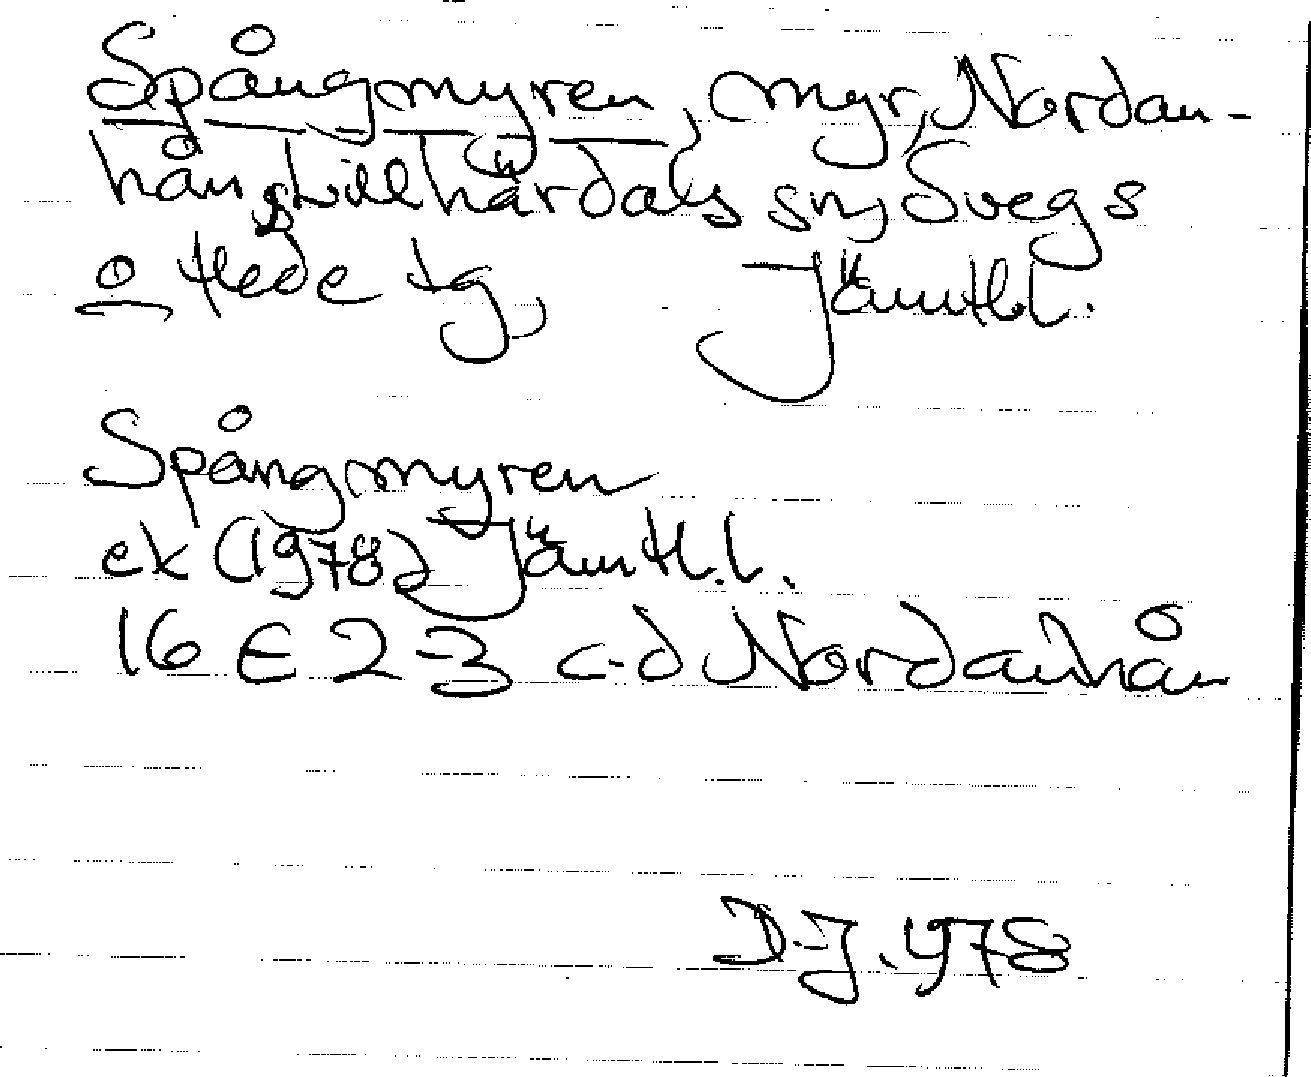 Spångmyren, myr, Nordan-
hån, Lillhärdals sn, Svegs
o Hede tg, Jämtl.l.
Spångmyren
ek (1978) Jämtl.l.
16 E 2-3 c-d Nordanhån
D.J. 1978